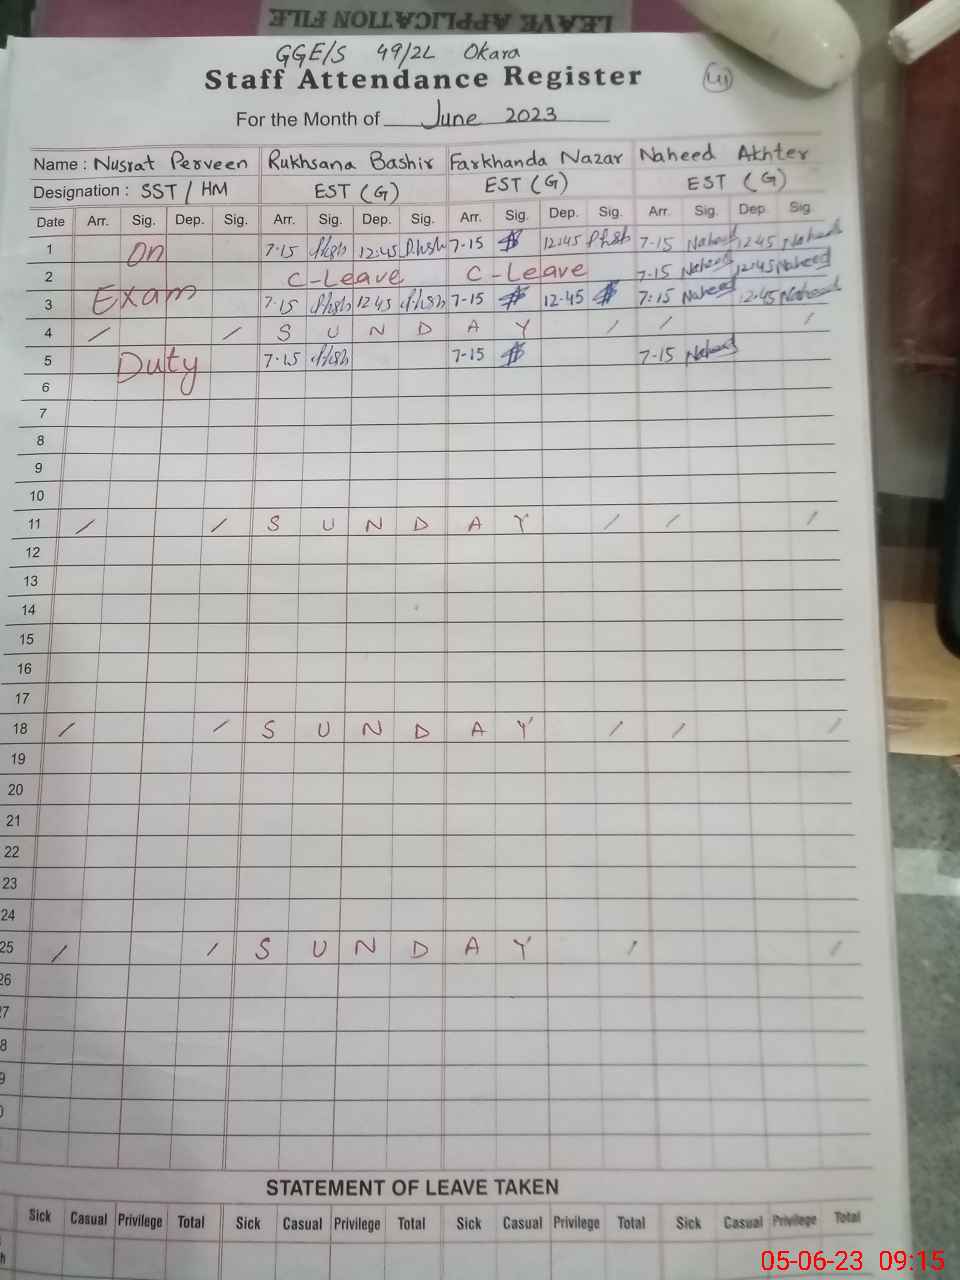 LEAVE APPLICATION FILE
GGE/S 49/2L Okara
Staff Attendance Register
For the Month of June 2023
Name : Nusrat Perveen Rukhsana Bashir Farkhanda Nazar Naheed Akhter
Designation : SST / HM EST (G) EST (G) EST (G)
Date Arr. Sig. Dep. Sig. Arr. Sig. Dep. Sig. Arr. Sig. Dep. Sig. Arr. Sig. Dep. Sig.
1 On 7-15 12:45 7-15 12:45 7-15 Naheed 12:45 Naheed
2 C-Leave C-Leave 7-15 Naheed 12:45 Naheed
3 Exam 7-15 12:45 7-15 12-45 7:15 Naheed 12:45 Naheed
4 / / S U N D A Y / / /
5 Duty 7-15 7-15 7-15 Naheed
6
7
8
9
10
11 / / S U N D A Y / / /
12
13
14
15
16
17
18 / / S U N D A Y / / /
19
20
21
22
23
24
25 / / S U N D A Y / /
26
7
8
9
STATEMENT OF LEAVE TAKEN
Sick Casual Privilege Total Sick Casual Privilege Total Sick Casual Privilege Total Sick Casual Privilege Total
05-06-23 09:15